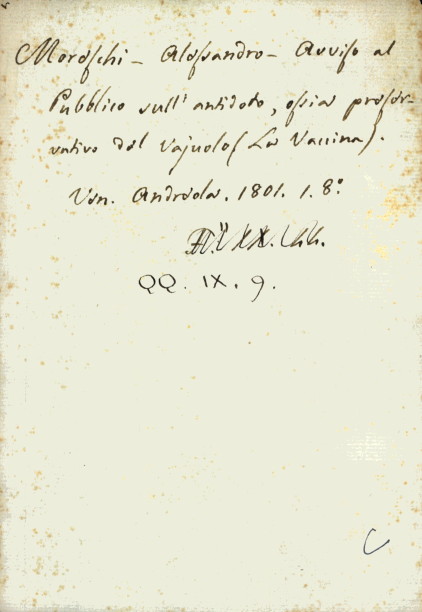 Moreschi - Alessandro - Avviso al
Pubblico sull' antidoto, ossia preser-
vativo del Vajuolo (La Vaccina).
Ven. Andreola. 1801. 1. 8.°
QQ. IX. 9.
C